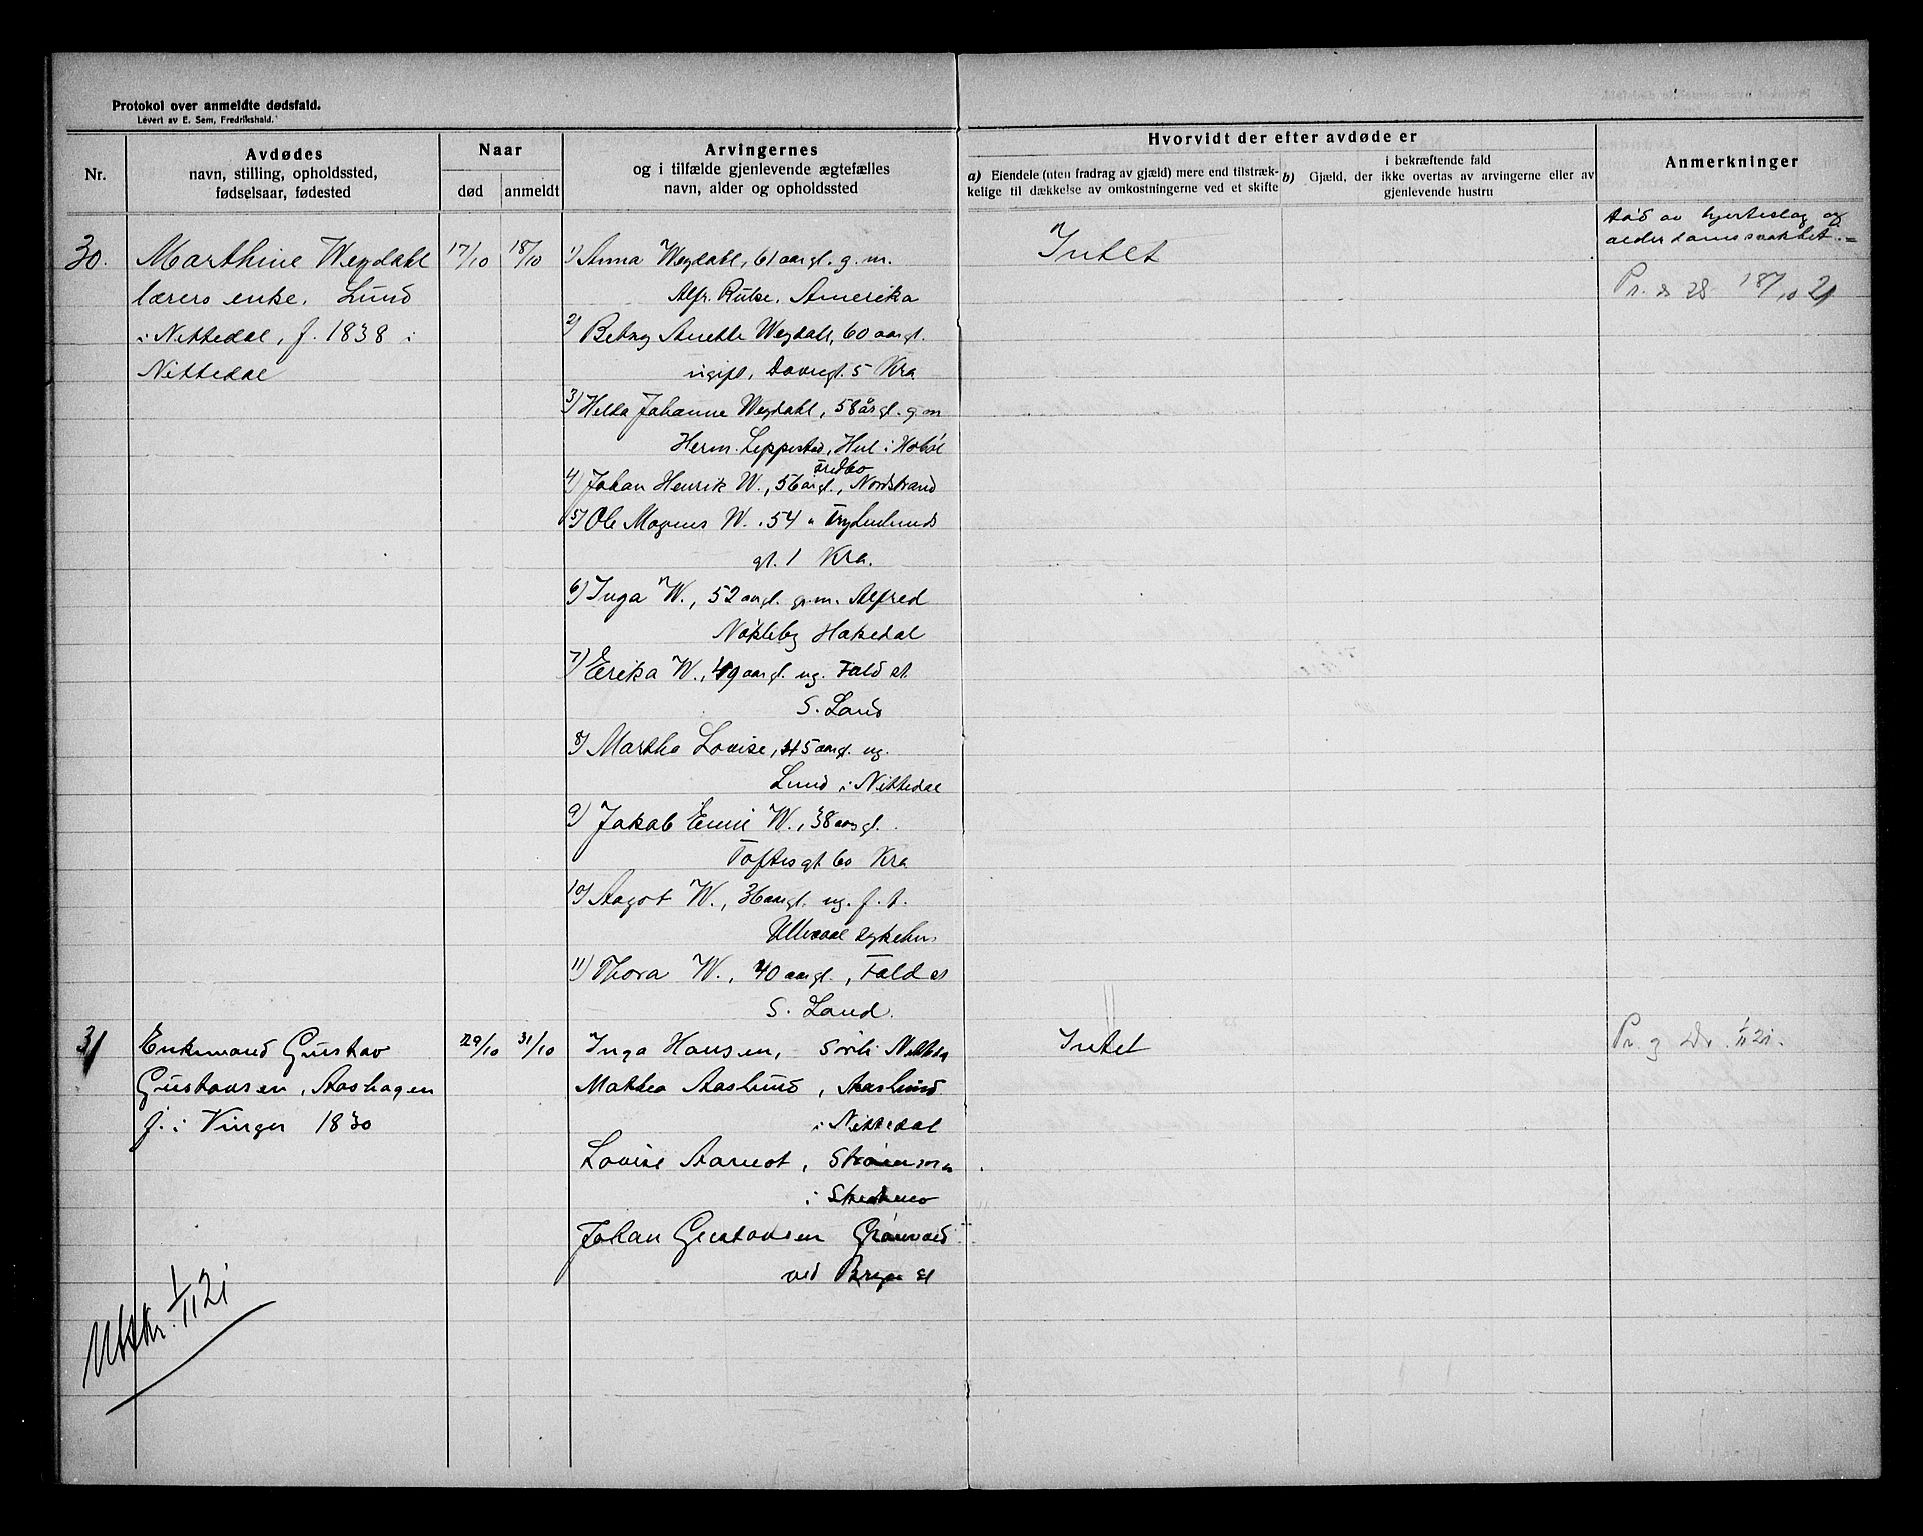 Protokol over anmeldte dødsfald.
Levert av E. Sem, Fredrikshald.
Nr.
Avdødes
navn, stilling, opholdssted,
fødselsaar, fødested
Naar
død
anmeldt
Arvingernes
og i tilfælde gjenlevende ægtefælles
navn, alder og opholdssted
Hvorvidt der efter avdøde er
a) Eiendele (uten fradrag av gjæld) mere end tilstræk-
kelige til dækkelse av omkostningerne ved et skifte
i bekræftende fald
b) Gjæld, der ikke overtas av arvingerne eller av
gjenlevende hustru
Anmerkninger
30.
Marthine Weydahl
lærers enke, Lund
i Nittedal, f. 1838 i
Nittedal
17/10
18/10
1) Anna Weydahl, 61 aar gl. g. m.
Alfr. Amerika
2) Anette Weydahl, 60 aar gl.
ugift, 5 Kra
3) Helda Johanne Weydahl, 58 år gl. g m
Herm. Leppestad, i Hobøl
4) Johan Henrik W., 56 år gl., Nordstrand
5) Ole Magnus W. 54 "
gt. 1 Kra.
6) Inga W., 52 aar gl. g. m. Alfred
Nökleby Hakedal
7) Erika W., 49 aar gl. ug. Fald st
S. Land
8) Martha Lovise, 45 aar gl. ug.
Lund i Nittedal
9) Jakob Emil W., 38 aar gl.
Toftes gt 60 Kra
10) Aagot W., 36 aar gl. ug. f. t.
Ullevaal sykehus
11) Thora W., 40 aar gl., Fald st
S. Land.
Intet
død av hjerteslag og
alderdomssvakhet.
18/10 21
31
Enkemand Gustav
Gustavsen, Aashagen
f. i Vinger 1830
29/10
31/10
Inga Hansen,
Mathea Aaslund, Aaslund
i Nittedal
Lovise Aarnot, Strömmen
i Skedsmo
Johan Gustavsen Grönvold
ved st
Intet
Pr. g Dr. 1/11 21.
Utskr. 1/11 21